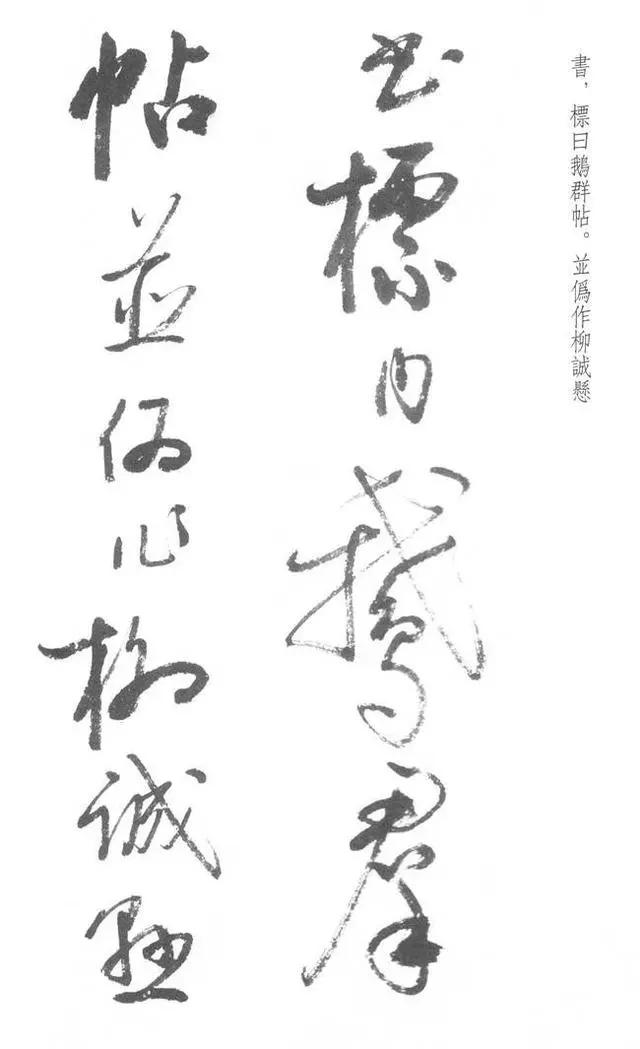 書，標曰鵝群帖。並僞作柳誠懸
书標曰鵞羣
帖並偽作柳誠懸